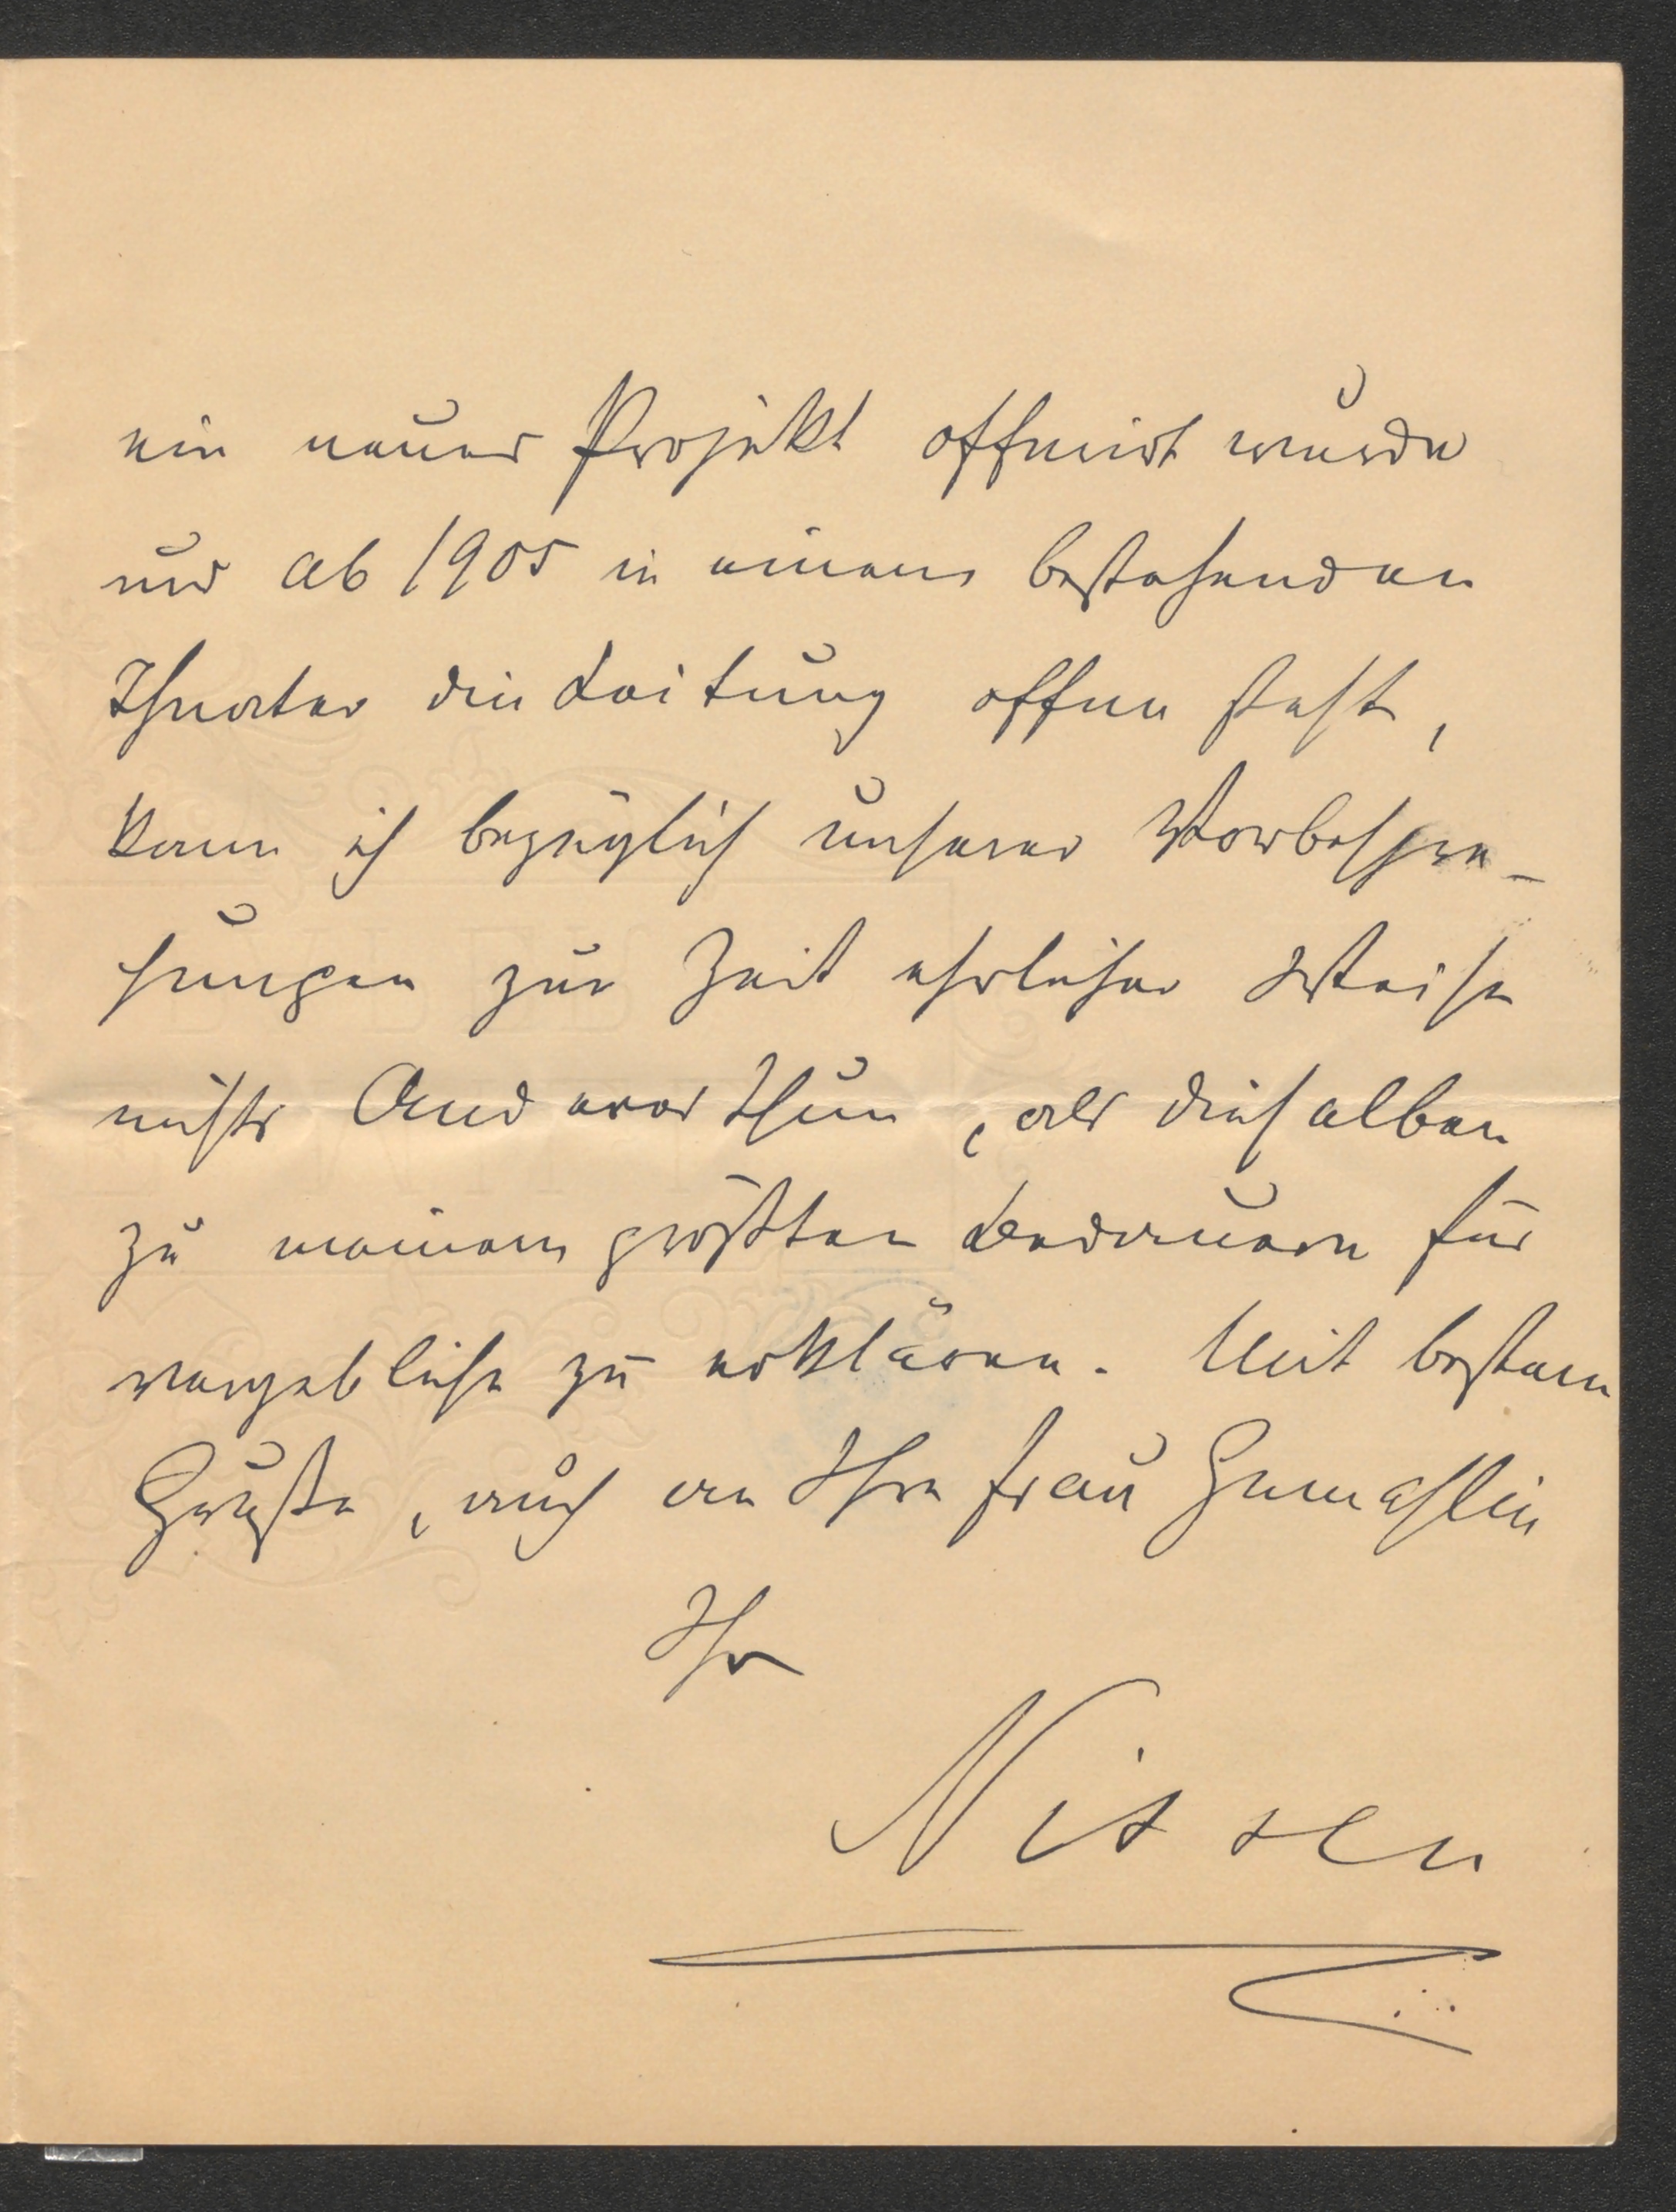 ein neues Projekt offerirt wurde
und ab 1905 in einem bestehenden
Theater die Leitung offen steht,
kann ich bezüglich unserer Vorbespre-
chungen zur Zeit ehrlicher Weise
nichts Anderes thun, als dieselben
zu meinem größten Bedauern für
vergebliche zu erklären. Mit bestem
Gruße, auch an Ihre Frau Gemahlin
Ihr
Nissen